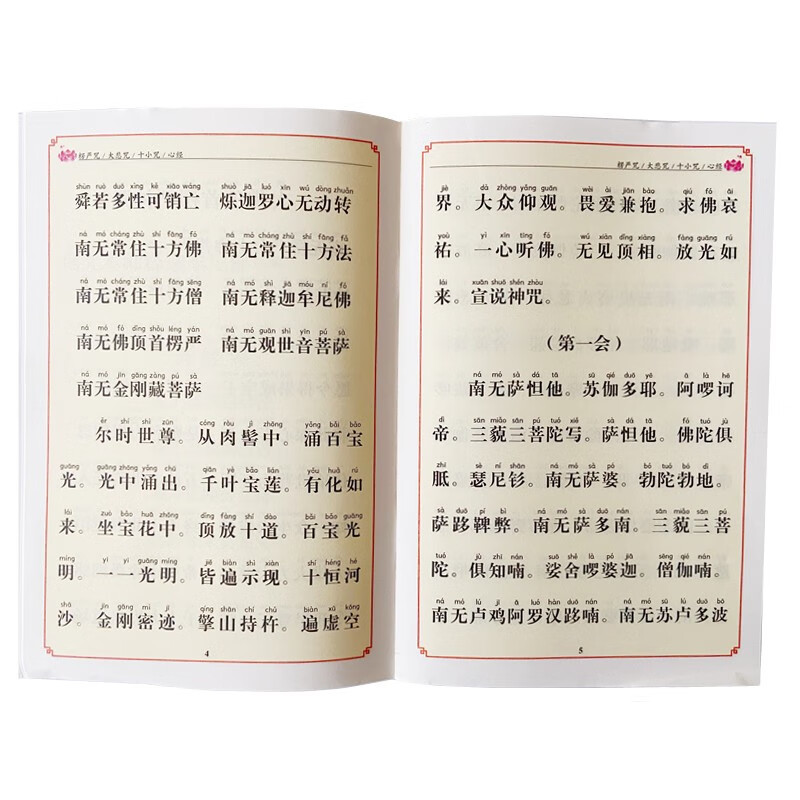 楞严咒/大悲咒/十小咒/心经
shùn ruò duō xìng kě xiāo wáng shuò jiā luó xīn wú dòng zhuǎn
舜若多性可销亡 烁迦罗心无动转
ná mó cháng zhù shí fāng fó ná mó cháng zhù shí fāng fǎ
南无常住十方佛 南无常住十方法
ná mó cháng zhù shí fāng sēng ná mó shì jiā móu ní fó
南无常住十方僧 南无释迦牟尼佛
ná mó fó dǐng shǒu léng yán ná mó guān shì yīn pú sà
南无佛顶首楞严 南无观世音菩萨
ná mó jīn gāng zàng pú sà
南无金刚藏菩萨
ěr shí shì zūn cóng ròu jì zhōng yǒng bǎi bǎo
尔时世尊。从肉髻中。涌百宝
guāng guāng zhōng yǒng chū qiān yè bǎo lián yǒu huà rú
光。光中涌出。千叶宝莲。有化如
lái zuò bǎo huā zhōng dǐng fàng shí dào bǎi bǎo guāng
来。坐宝花中。顶放十道。百宝光
míng yī yī guāng míng jiē biàn shì xiàn shí héng hé
明。一一光明。皆遍示现。十恒河
shā jīn gāng mì jì qíng shān chí chǔ biàn xū kōng
沙。金刚密迹。擎山持杵。遍虚空
4
楞严咒/大悲咒/十小咒/心经
jiè dà zhòng yǎng guān wèi ài jiān bào qiú fó āi
界。大众仰观。畏爱兼抱。求佛哀
yòu yì xīn tīng fó wú jiàn dǐng xiàng fàng guāng rú
祐。一心听佛。无见顶相。放光如
lái xuān shuō shén zhòu
来。宣说神咒。
（第一会）
ná mó sà dá tā sū qié duō yē ā là hē
南无萨怛他。苏伽多耶。阿啰诃
dì sān miǎo sān pú tuó xiě sà dá tā fó tuó jù
帝。三藐三菩陀写。萨怛他。佛陀俱
zhī sè ní shān ná mó sà pó bó tuó bó dì
胝。瑟尼钐。南无萨婆。勃陀勃地。
sà duǒ pí bì ná mó sà duō nán sān miǎo sān pú
萨跢鞞弊。南无萨多南。三藐三菩
tuó jù zhī nán suō shě là pó jiā sēng qié nán
陀。俱知喃。娑舍啰婆迦。僧伽喃。
ná mó lú jī ā luó hàn duǒ nán ná mó sū lú duō bō
南无卢鸡阿罗汉跢喃。南无苏卢多波
5